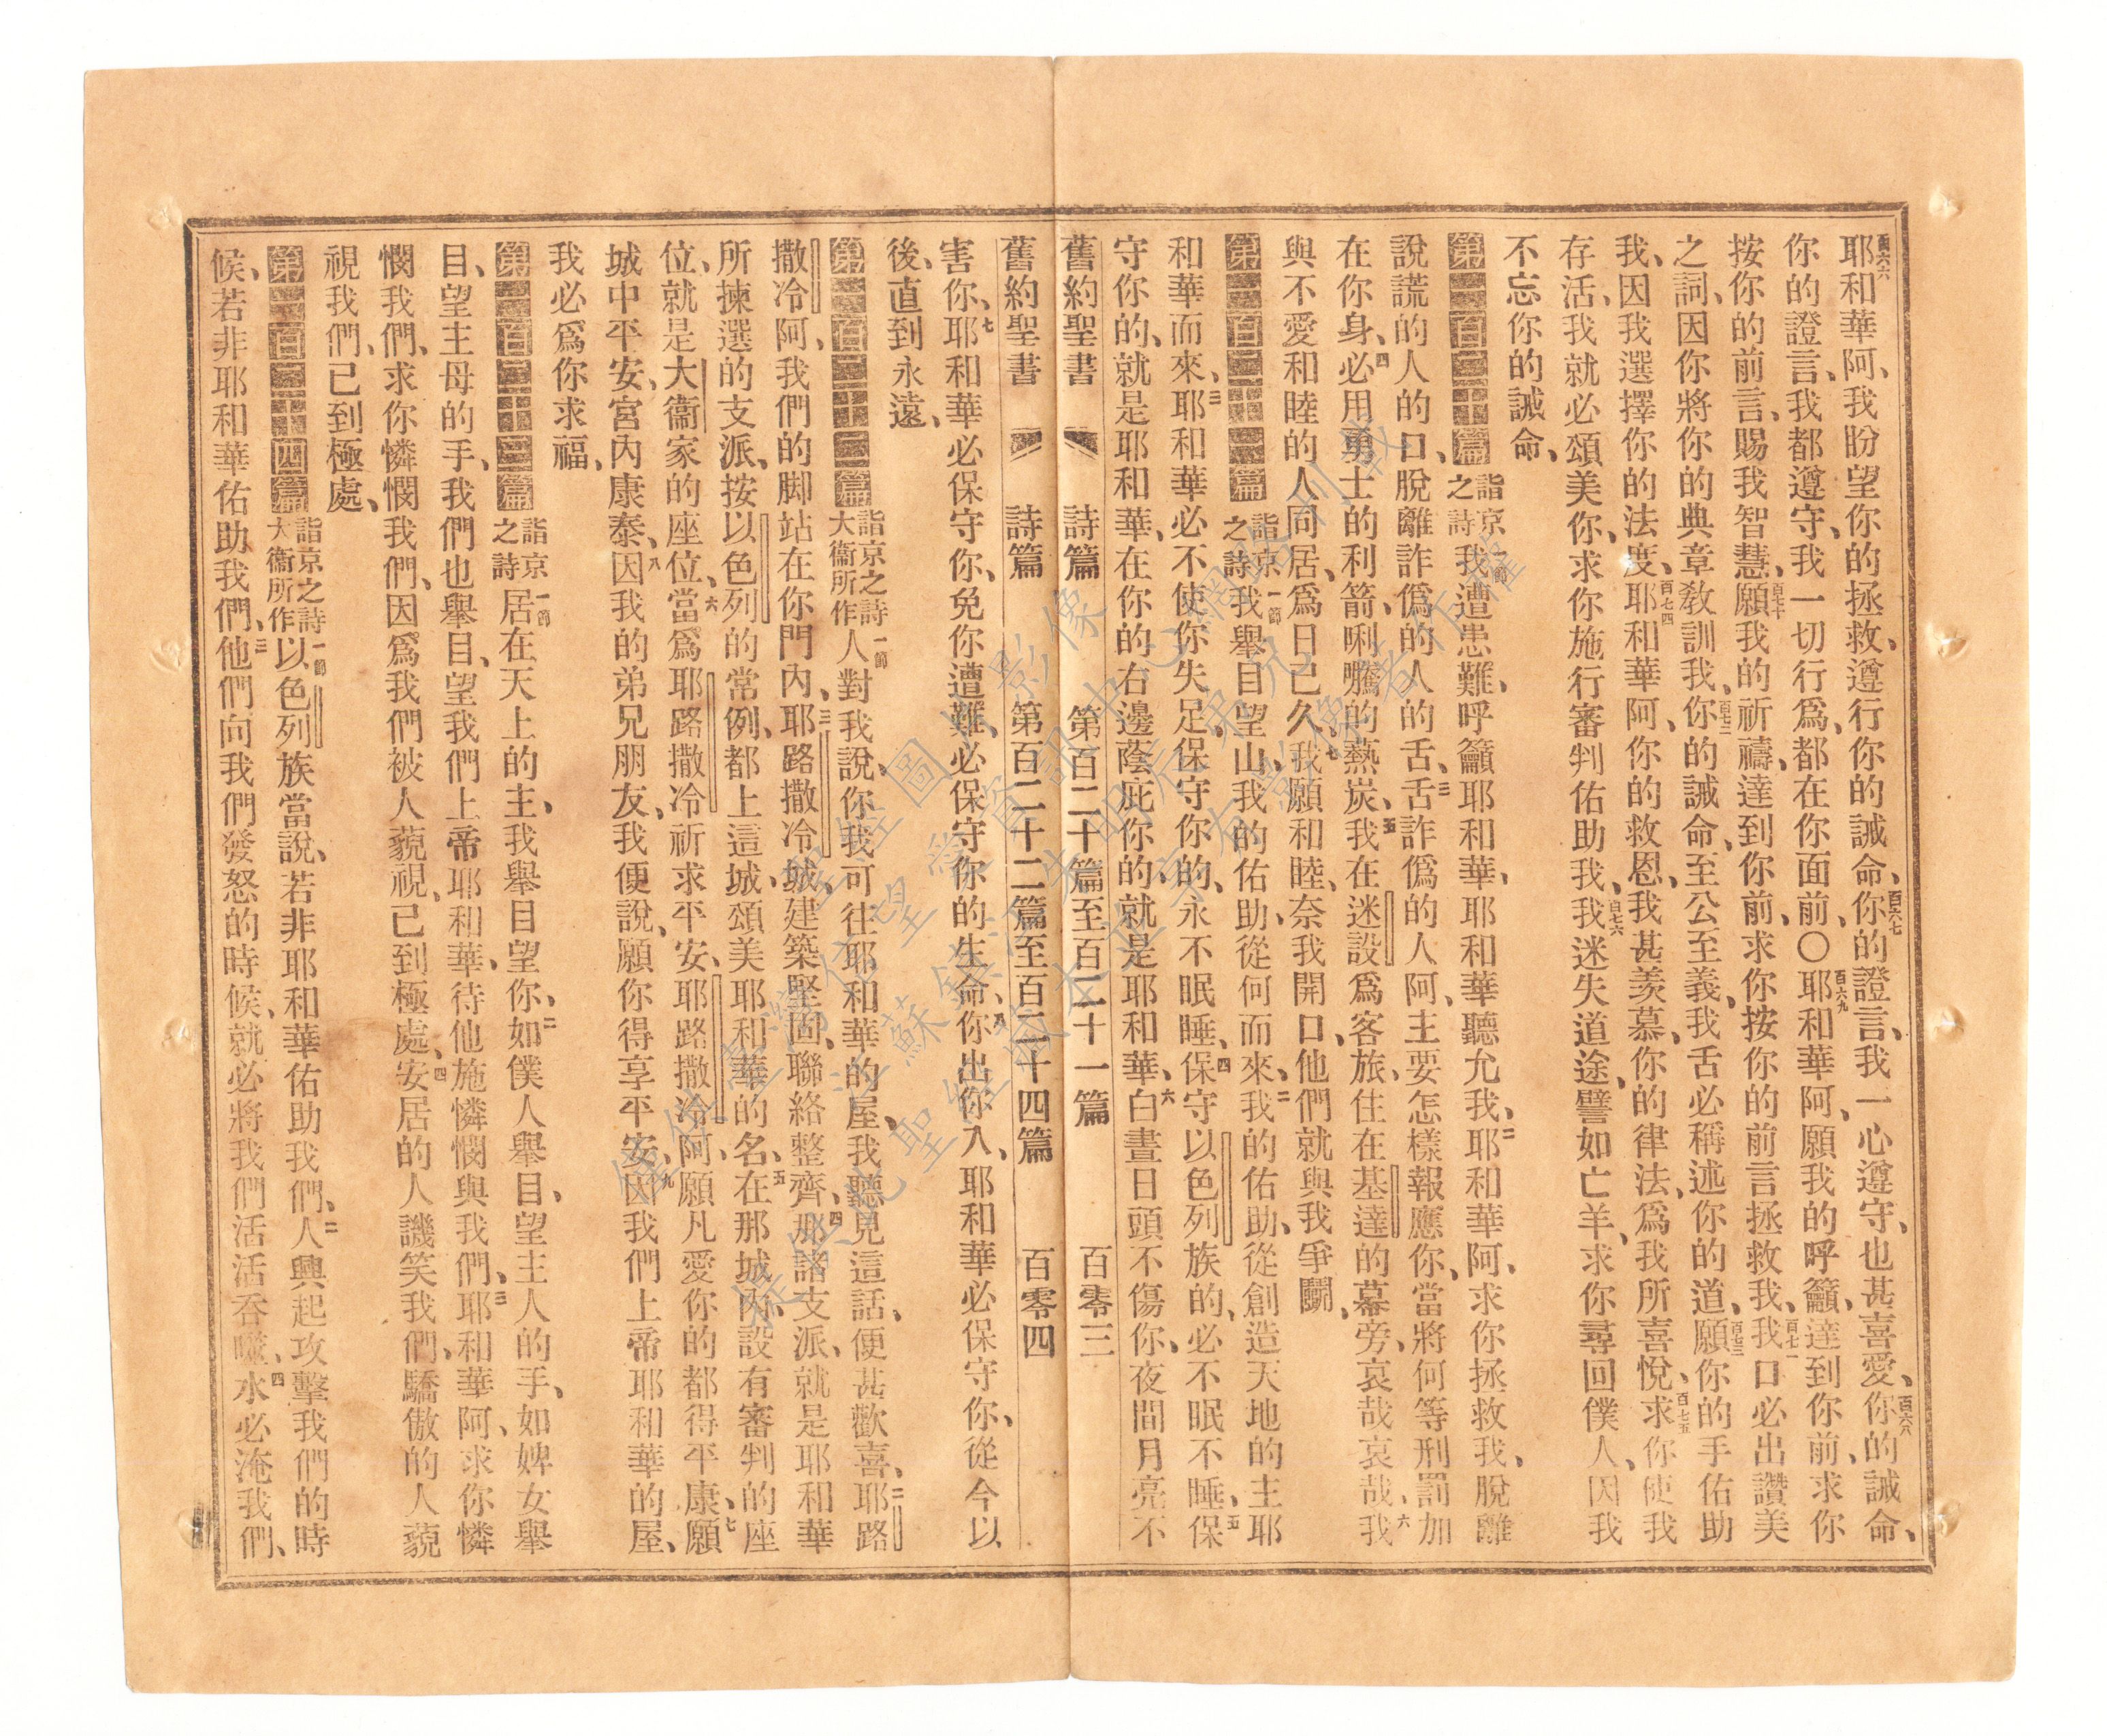 百六六耶和華阿、我盼望你的拯救、遵行你的誡命、百六七你的證言、我一心遵守、也甚喜愛、百六八你的誡命、
你的證言、我都遵守、我一切行爲、都在你面前、〇百六九耶和華阿、願我的呼籲、達到你前、求你
按你的前言、賜我智慧、百七十願我的祈禱、達到你前、求你按你的前言拯救我、百七一我口必出讚美
之詞、因你將你的典章教訓我、百七二你的誡命、至公至義、我舌必稱述你的道、百七三願你的手佑助
我、因我選擇你的法度、百七四耶和華阿、你的救恩、我甚羨慕、你的律法、爲我所喜悅、百七五求你使我
存活、我就必頌美你、求你施行審判佑助我、百七六我迷失道途、譬如亡羊、求你尋回僕人、因我
不忘你的誡命、
第一百二十篇 詣京之詩 一節我遭患難、呼籲耶和華、耶和華聽允我、二耶和華阿、求你拯救我、脫離
說謊的人的口、脫離詐僞的人的舌、三舌詐僞的人阿、主要怎樣報應你、當將何等刑罰加
在你身、四必用勇士的利箭、㖿騰的爇炭、五我在迷設爲客旅、住在基達的幕旁、哀哉哀哉、六我
與不愛和睦的人同居、爲日已久、七我願和睦、奈我開口、他們就與我爭鬭、
第一百二十一篇 詣京之詩 一節我舉目望山、我的佑助、從何而來、二我的佑助、從創造天地的主耶
和華而來、三耶和華必不使你失足、保守你的、永不眠睡、四保守以色列族的、必不眠不睡、五保
守你的、就是耶和華、在你的右邊蔭庇你的、就是耶和華、六白晝日頭不傷你、夜間月亮不
舊約聖書 詩篇 第百二十篇至百二十一篇 百零三
舊約聖書 詩篇 第百二十二篇至百二十四篇 百零四
害你、七耶和華必保守你、免你遭難、必保守你的生命、八你出你入、耶和華必保守你、從今以
後、直到永遠、
第一百二十二篇 詣京之詩大衞所作 一節人對我說、你我可往耶和華的屋、我聽見這話、便甚歡喜、二耶路
撒冷阿、我們的脚站在你門內、三耶路撒冷城、建築堅固、聯絡整齊、四那諸支派、就是耶和華
所揀選的支派、按以色列的常例、都上這城、頌美耶和華的名、五在那城內、設有審判的座
位、就是大衞家的座位、六當爲耶路撒冷祈求平安、耶路撒冷阿、願凡愛你的都得平康、七願
城中平安、宮內康泰、八因我的弟兄朋友、我便說、願你得享平安、九因我們上帝耶和華的屋、
我必爲你求福、
第一百二十三篇 詣京之詩 一節居在天上的主、我舉目望你、二如僕人舉目、望主人的手、如婢女舉
目、望主母的手、我們也舉目、望我們上帝耶和華、待他施憐憫與我們、三耶和華阿、求你憐
憫我們、求你憐憫我們、因爲我們被人藐視、已到極處、四安居的人譏笑我們、驕傲的人藐
視我們、已到極處、
第一百二十四篇 詣京之詩大衞所作 一節以色列族當說、若非耶和華佑助我們、二人興起攻擊我們的時
候、若非耶和華佑助我們、三他們向我們發怒的時候、就必將我們活活吞噬、四水必淹我們、